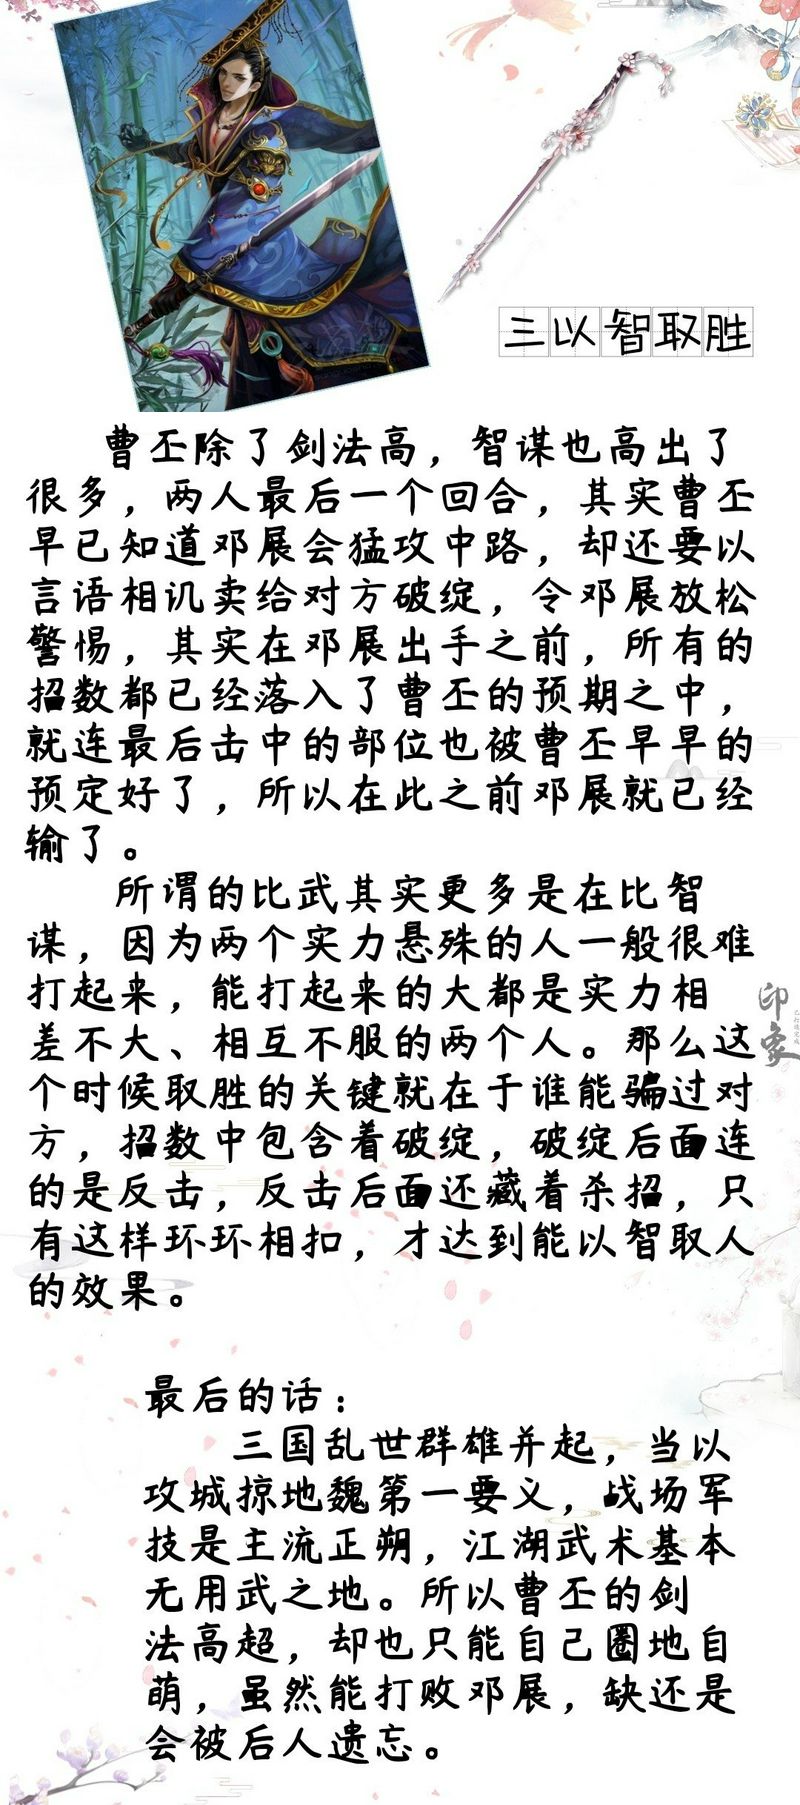 三以智取胜
曹丕除了剑法高，智谋也高出了
很多，两人最后一个回合，其实曹丕
早已知道邓展会猛攻中路，却还要以
言语相讥卖给对方破绽，令邓展放松
警惕，其实在邓展出手之前，所有的
招数都已经落入了曹丕的预期之中，
就连最后击中的部位也被曹丕早早的
预定好了，所以在此之前邓展就已经
输了。
所谓的比武其实更多是在比智
谋，因为两个实力悬殊的人一般很难
打起来，能打起来的大都是实力相
差不大、相互不服的两个人。那么这
个时候取胜的关键就在于谁能骗过对
方，招数中包含着破绽，破绽后面连
的是反击，反击后面还藏着杀招，只
有这样环环相扣，才达到能以智取人
的效果。
印象
最后的话：
三国乱世群雄并起，当以
攻城掠地魏第一要义，战场军
技是主流正朔，江湖武术基本
无用武之地。所以曹丕的剑
法高超，却也只能自己圈地自
萌，虽然能打败邓展，缺还是
会被后人遗忘。